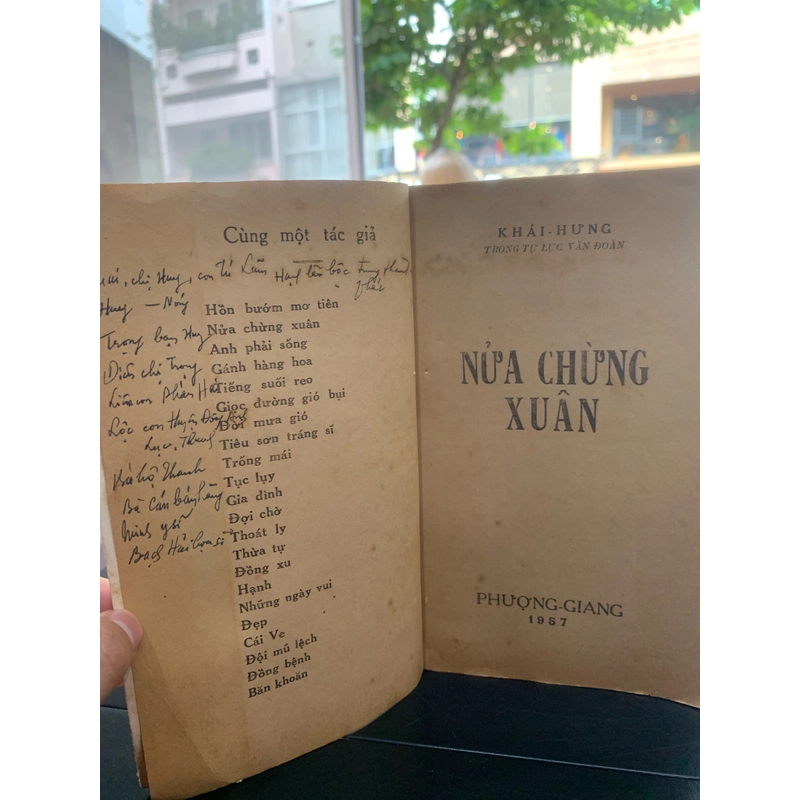 Cùng một tác giả
chị Huy, con Tú Lãm
Huy —
Trọng bạn Huy
Diên chị Trọng
Lộc con Huyện
Bà hộ Thanh
Bà Cán bán hàng
Minh y sĩ
Bạch Hải họa sĩ
Hồn bướm mơ tiên
Nửa chừng xuân
Anh phải sống
Gánh hàng hoa
Tiếng suối reo
Giọc đường gió bụi
Đời mưa gió
Tiêu sơn tráng sĩ
Trống mái
Tục lụy
Gia đình
Đợi chờ
Thoát ly
Thừa tự
Đồng xu
Hạnh
Những ngày vui
Đẹp
Cái Ve
Đội mũ lệch
Đồng bệnh
Băn khoăn
KHÁI-HƯNG
TRONG TỰ LỰC VĂN ĐOÀN
NỬA CHỪNG
XUÂN
PHƯỢNG-GIANG
1957